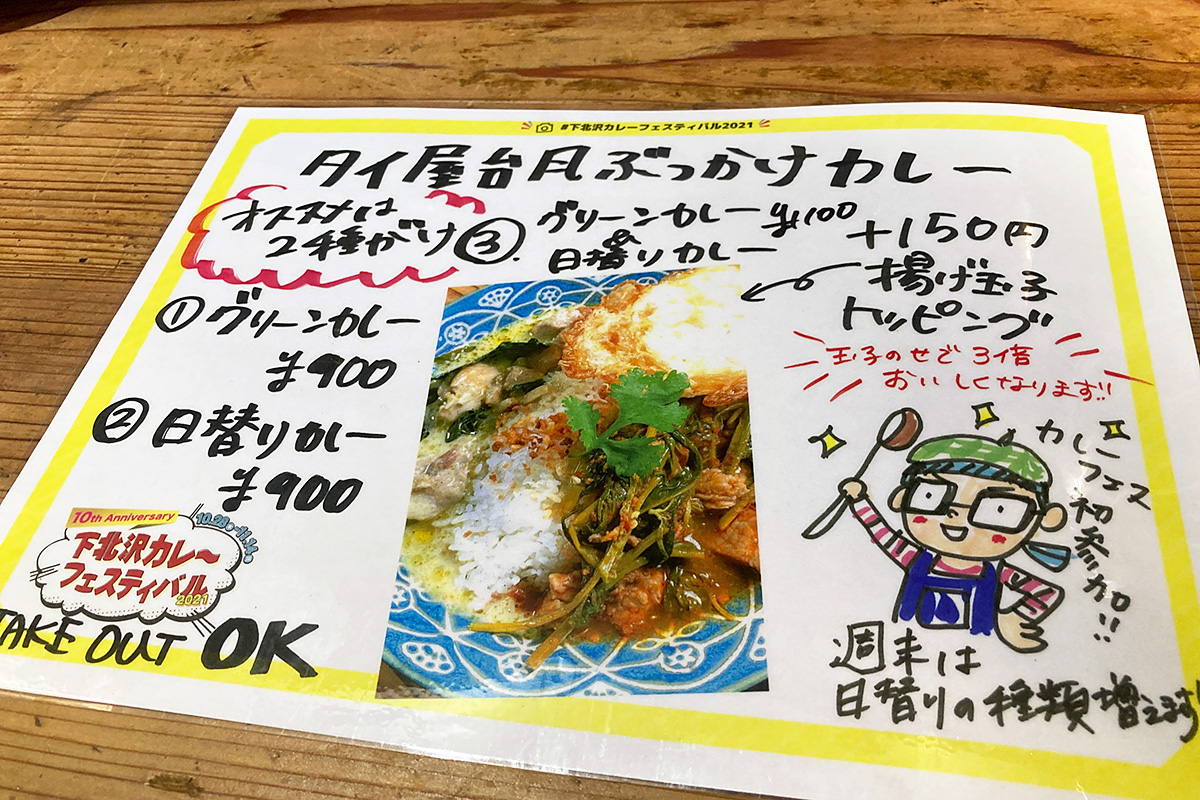 #下北沢カレーフェスティバル2021
タイ屋台風ぶっかけカレー
オススメは
2種がけ
③.グリーンカレー ¥1100
&
日替りカレー
+150円
揚げ玉子
トッピング
玉子のせで3倍
おいしくなります!!
①グリーンカレー
¥900
②日替りカレー
¥900
10th Anniversary
下北沢カレー
フェスティバル
2021
TAKE OUT OK
カレー
フェス
初参加!!
週末は
日替りの種類増えます